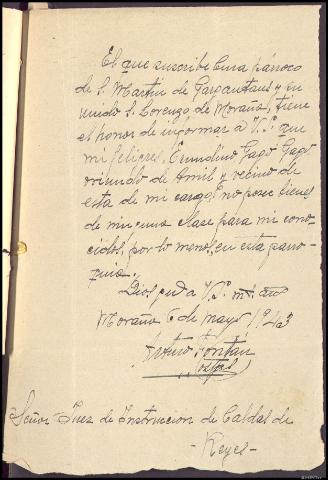 El que suscribe Cura párroco
de S. Martín de Gargantans y su
unido S. Lorenzo de Moraña, tiene
el honor de informar a V.S. que
mi feligrés, Ermidino Gago Gago
oriundo de Amil y vecino de
esta de mi cargo, no posee bienes
de ninguna clase para mi cono-
cidos, por lo menos, en esta parro-
quia.
Dios gue a V.S. ms. as.
Moraña 6 de mayo 1943
Arturo Fontán
Señor Juez de Instruccion de Caldas de
Reyes-